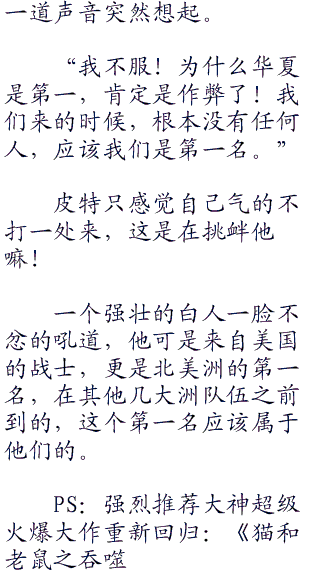 一道声音突然想起。
“我不服！为什么华夏
是第一，肯定是作弊了！我
们来的时候，根本没有任何
人，应该我们是第一名。”
皮特只感觉自己气的不
打一处来，这是在挑衅他
嘛！
一个强壮的白人一脸不
忿的吼道，他可是来自美国
的战士，更是北美洲的第一
名，在其他几大洲队伍之前
到的，这个第一名应该属于
他们的。
PS：强烈推荐大神超级
火爆大作重新回归：《猫和
老鼠之吞噬